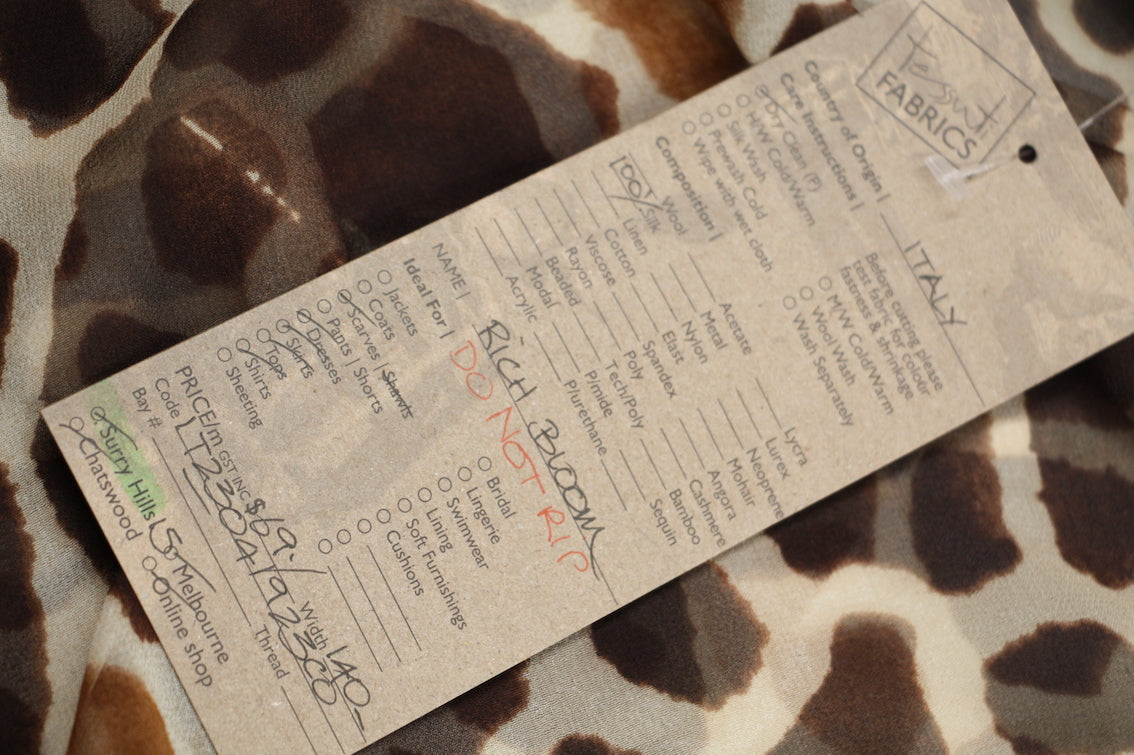 Tessuti
FABRICS
Country of Origin | ITALY
Care Instructions |
Dry Clean (P)
H/W Cold/Warm
Silk Wash
Prewash Cold
Wipe with wet cloth
Before cutting please
test fabric for colour
fastness & shrinkage
M/W Cold/Warm
Wool Wash
Wash Separately
Composition |
Wool
100% Silk
Linen
Cotton
Viscose
Rayon
Beaded
Modal
Acrylic
Acetate
Metal
Nylon
Elast
Spandex
Poly
Tech/Poly
P/mide
P/urethane
Lycra
Lurex
Neoprene
Mohair
Angora
Cashmere
Bamboo
Sequin
NAME | RICH BLOOM
DO NOT RIP
Ideal For |
Jackets
Coats
Scarves | Shawls
Pants | Shorts
Dresses
Skirts
Tops
Shirts
Sheeting
Bridal
Lingerie
Swimwear
Lining
Soft Furnishings
Cushions
PRICE/m GST INC $69./ Width 140
Code LT2304192300
Bay # Thread
Surry Hills Melbourne
Chatswood Online shop